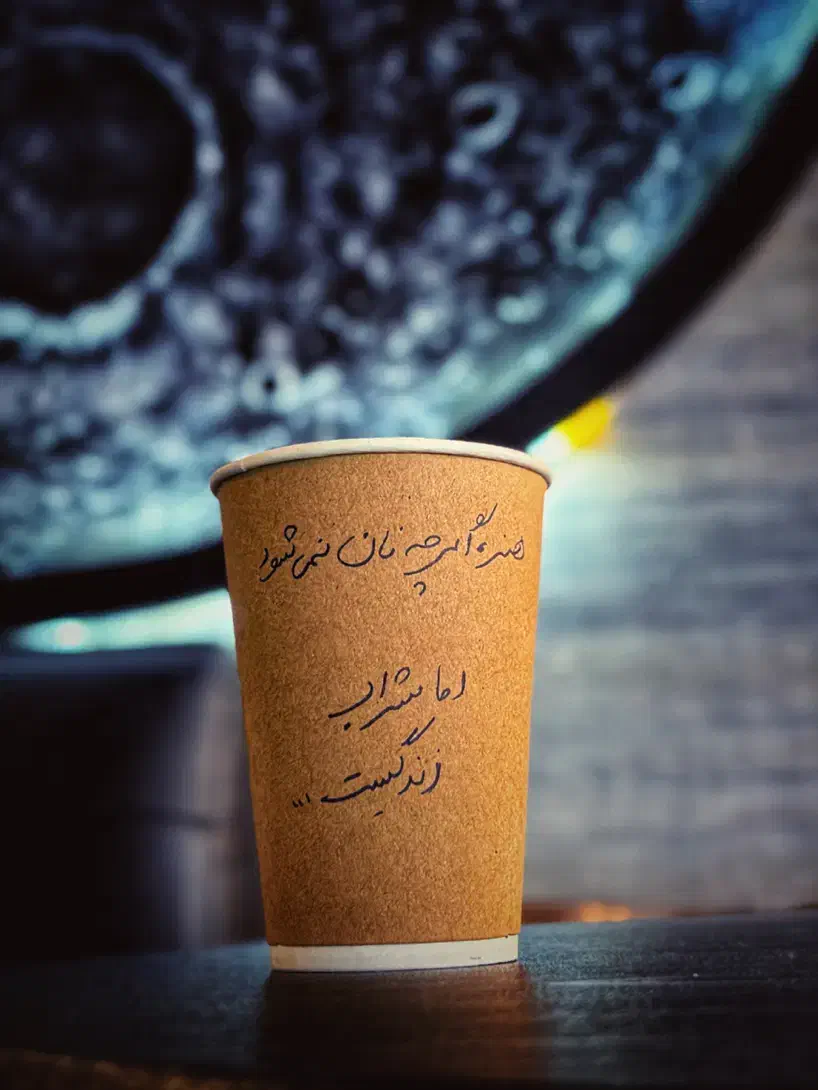 هنر، گرچه نان نمی‌شود
اما شراب
زندگیست...